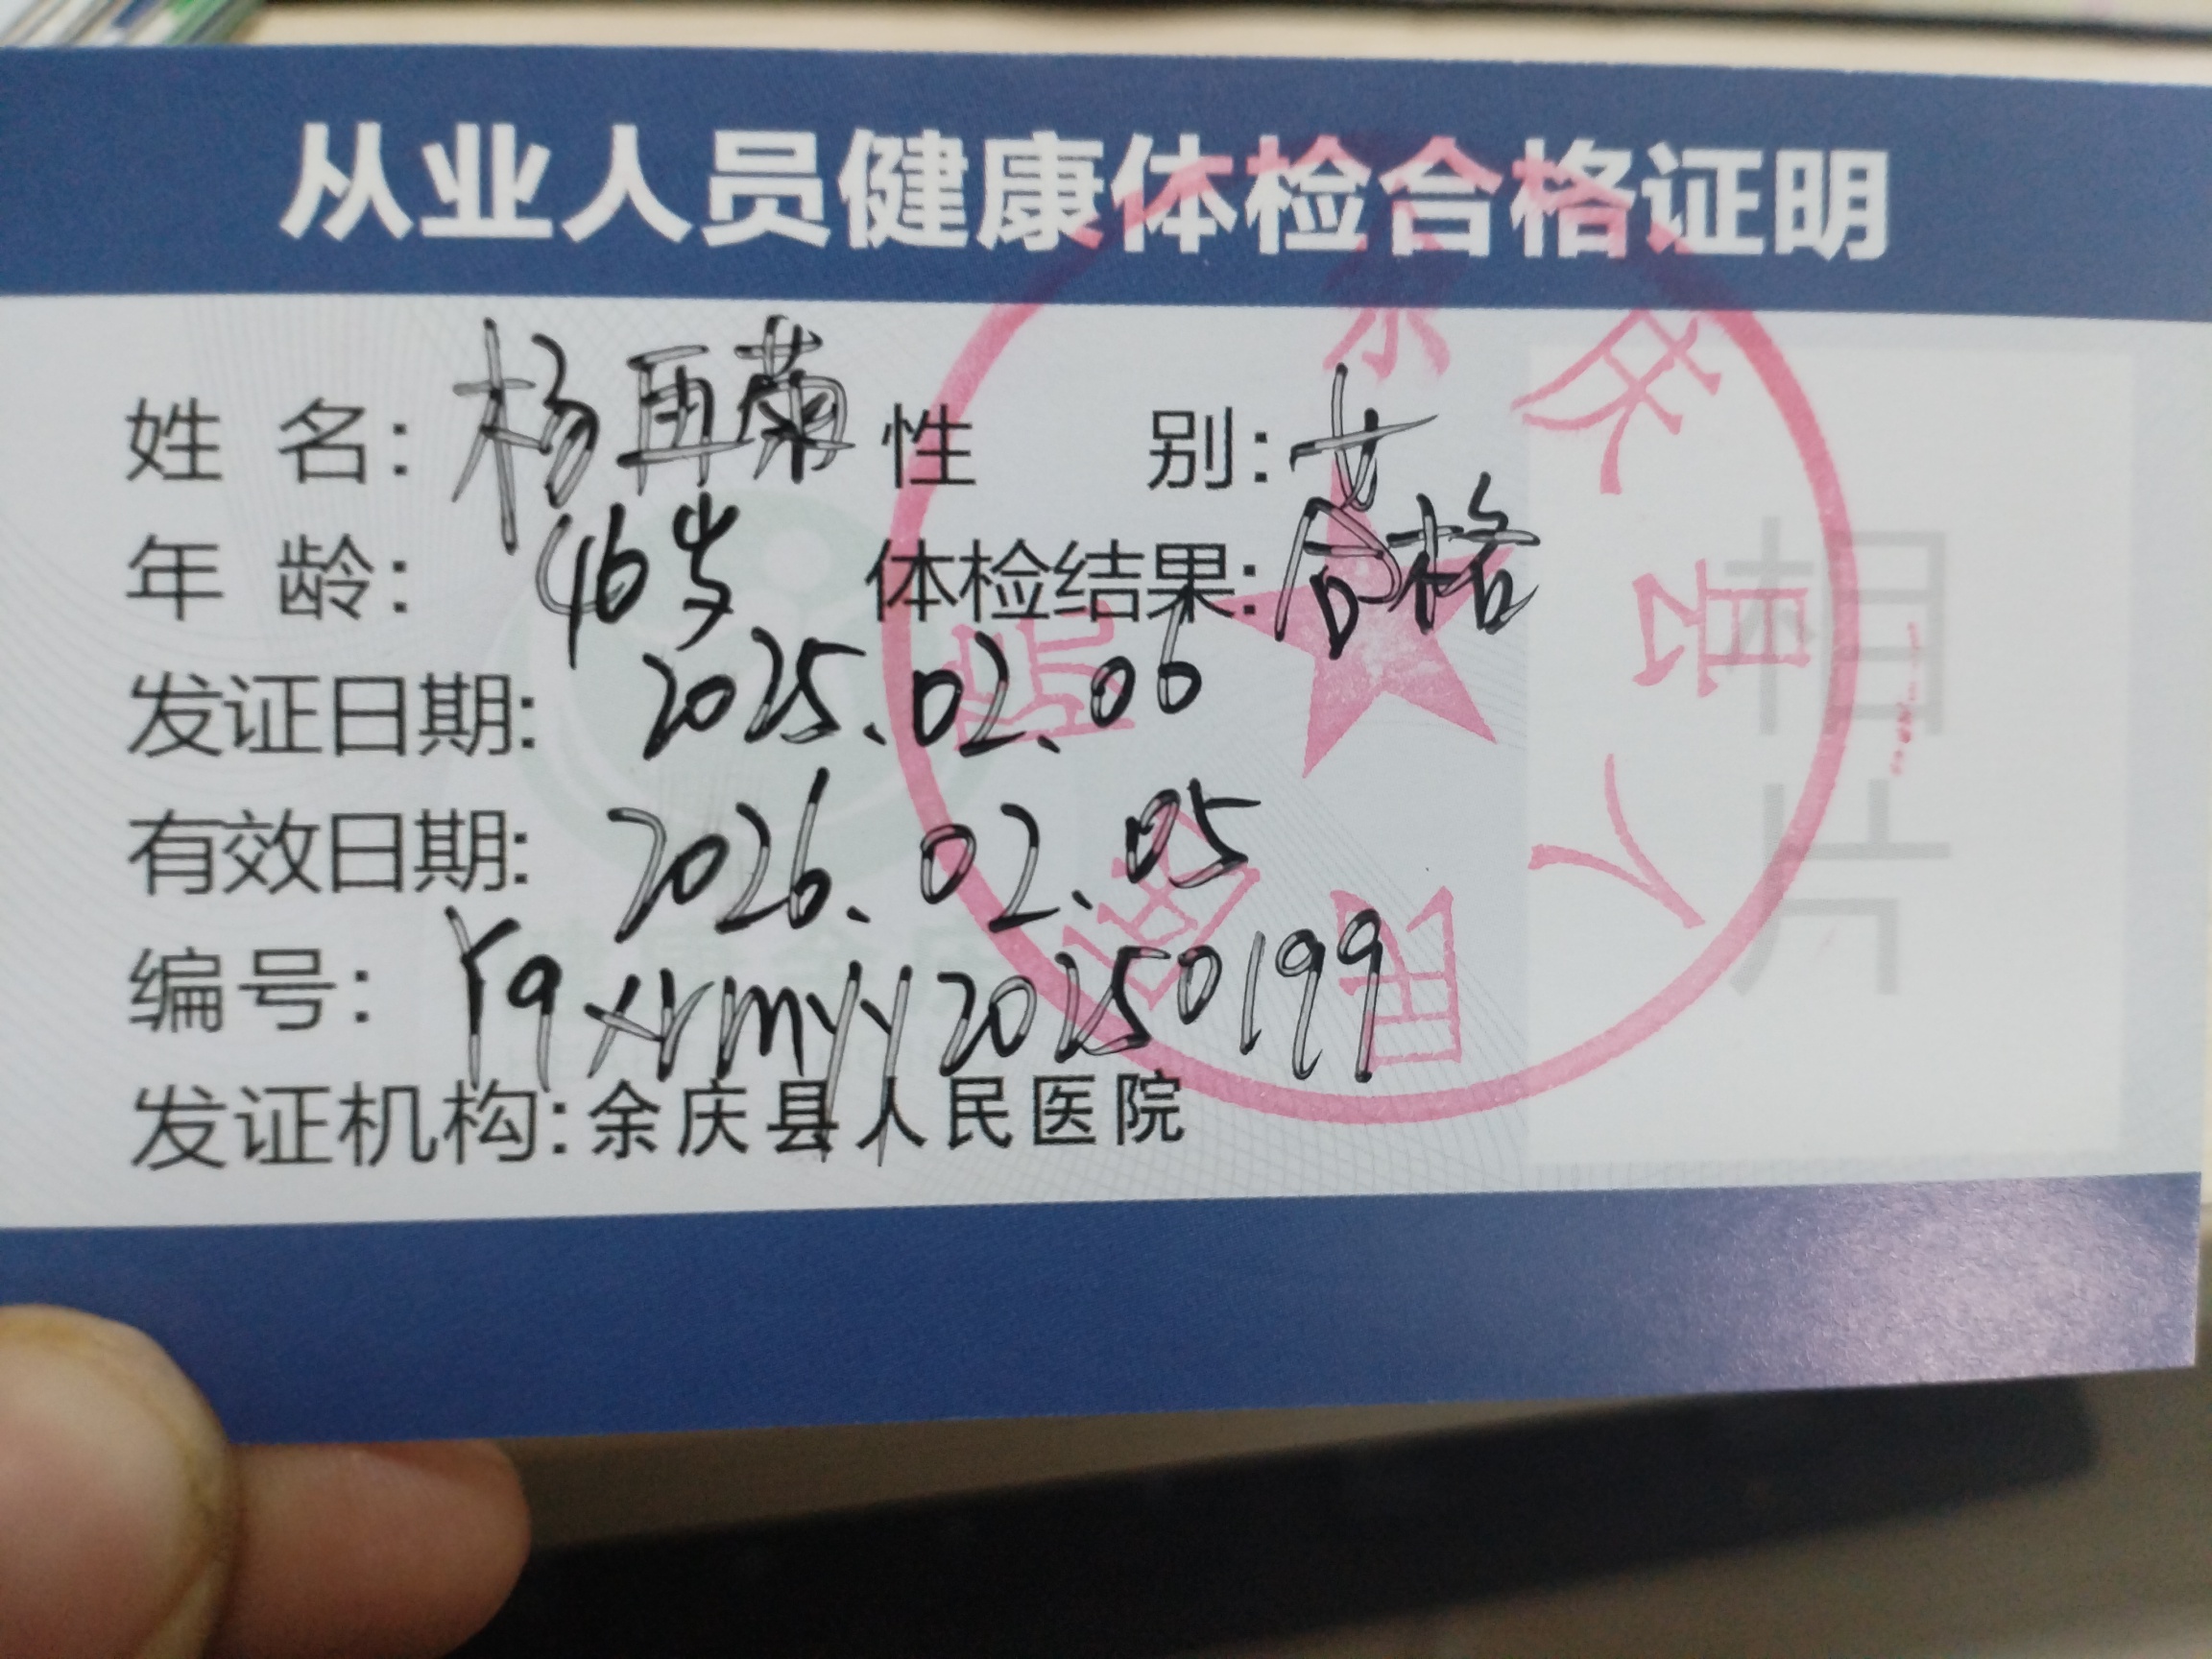 从业人员健康体检合格证明
姓名：杨再菊 性别：女
年龄：46岁 体检结果：合格
发证日期：2025.02.06
有效日期：2026.02.05
编号：Yqxrmyy20250199
发证机构：余庆县人民医院
相片
余庆县人民医院